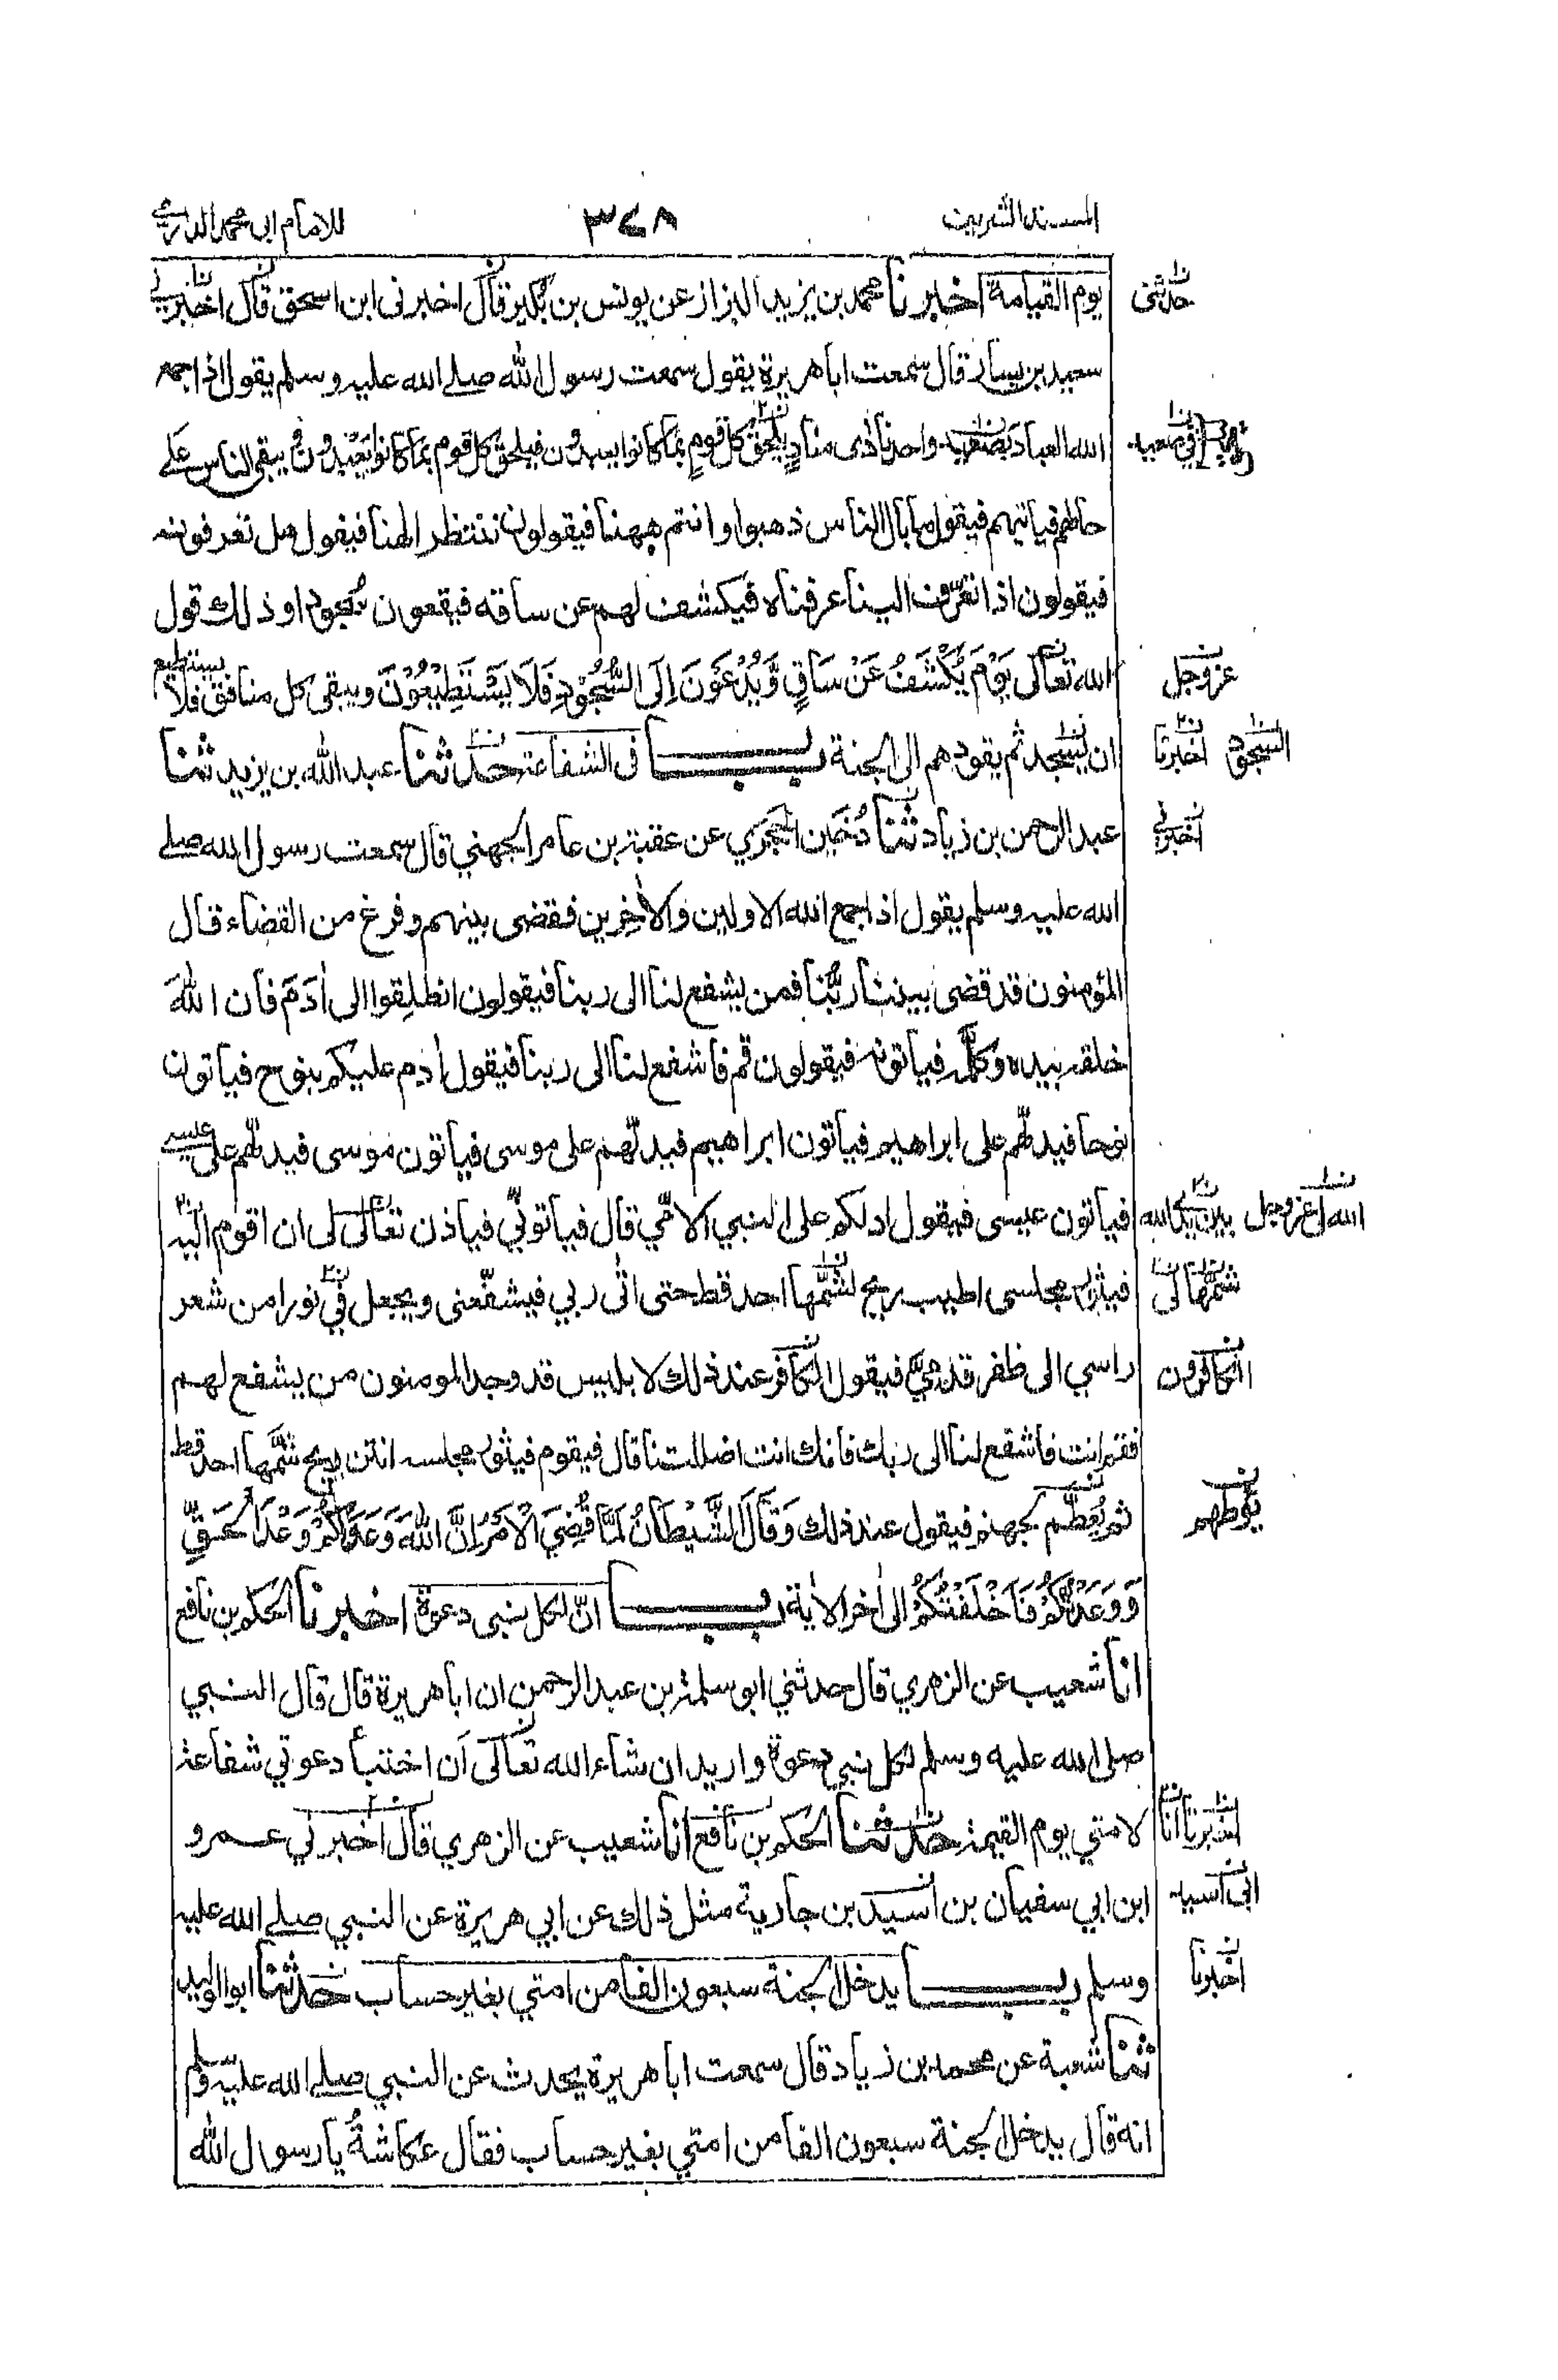 المسند الشريف ٣٤٨ للامام ابى محمد الدارمى
يوم القيامة اخبرنا محمد بن يزيد البزاز عن يونس بن بكير قال اخبرنى ابن اسحق قال اخبرنى
حدثنى
سعيد بن يسار قال سمعت ابا هريرة يقول سمعت رسول الله صلے الله عليه وسلم يقول اذا جمع
الله العباد بصعيد واحد نادى منادٍ يلحق كل قومٍ بما كانوا يعبدون فيلحق كل قوم بما كانوا يعبدون ويبقى الناس على
فى صعيد
حالهم فياتيهم فيقول ما بال الناس ذهبوا وانتم ههنا فيقولون ننتظر الهنا فيقول هل تعرفونه
فيقولون اذا تعرّف الينا عرفناه فيكشف لهم عن ساقه فيقعون سُجودا وذلك قول
الله تعالى يَوْمَ يُكْشَفُ عَنْ سَاقٍ وَّيُدْعَوْنَ اِلَى السُّجُوْدِ فَلَا يَسْتَطِيْعُوْنَ ويبقى كل منافق فلا يستطيع
عزوجل
ان يسجد ثم يقودهم الى الجنة باب فى الشفاعة حدثنا عبد الله بن يزيد ثنا
اخبرنا السجود
عبد الرحمن بن زياد ثنا دُخَين الحَجَرى عن عقبة بن عامر الجهني قال سمعت رسول الله صلے
اخبرنى
الله عليه وسلم يقول اذا جمع الله الاولين والاٰخِرين فقضى بينهم وفرغ من القضاء قال
المؤمنون قد قضى بيننا ربُّنا فمن يشفع لنا الى ربنا فيقولون انطلِقوا الى اٰدَمَ فان اللهَ
خلقه بيده وكلّمه فياتونه فيقولون قم فاشفع لنا الى ربنا فيقول اٰدم عليكم بنوح فياتون
نوحا فيدلّهم على ابراهيم فياتون ابراهيم فيدلّهم على موسى فياتون موسى فيدلّهم على عيسى
فياتون عيسى فيقول ادلكم على النبي الامّي قال فياتونّي فياذن تعالى لى ان اقوم اليه
الله عزوجل
فيثور مجلسى اطيب ريح لشمّها احد قط حتى اٰتى ربي فيشفّعنى ويجعل فيّ نورا من شعر
شمّها لى
راسي الى ظفر قدميّ فيقول الكافر عند ذلك لابليس قد وجد المومنون من يشفع لهم
الكافرون
فقم انت فاشفع لنا الى ربك فانك انت اضللتنا قال فيقوم فيثور مجلسه انتن ريح شمَّها احد قط
ثم يُعَظَّم لجهنم فيقول عند ذلك وَقَالَ الشَّيْطَانُ لَمَّا قُضِيَ الْاَمْرُ اِنَّ اللّٰهَ وَعَدَكُمْ وَعْدَ الْحَقِّ
يغوطهم
وَوَعَدْتُّكُمْ فَاَخْلَفْتُكُمْ الى اٰخر الاٰية باب انّ لكل نبى دعوة اخبرنا الحكم بن نافع
انا شعيب عن الزهري قال حدثني ابو سلمة بن عبد الرحمن ان ابا هريرة قال قال النبي
صلى الله عليه وسلم لكل نبي دعوة واريد ان شاء الله تعالى اَن اختبأ دعوتي شفاعة
لامتي يوم القيمة حدثنا الحكم بن نافع انا شعيب عن الزهري قال اخبرني عمرو
اخبرنا انا
ابن ابي سفيان بن اَسيد بن جارية مثل ذلك عن ابي هريرة عن النبي صلے الله عليه
ابى اسيد
وسلم باب يدخل الجنة سبعون الفا من امتي بغير حساب حدثنا ابو الوليد
اخبرنا
ثنا شعبة عن محمد بن زياد قال سمعت ابا هريرة يحدث عن النبي صلے الله عليه وسلم
انه قال يدخل الجنة سبعون الفا من امتي بغير حساب فقال عكاشةُ يا رسول الله